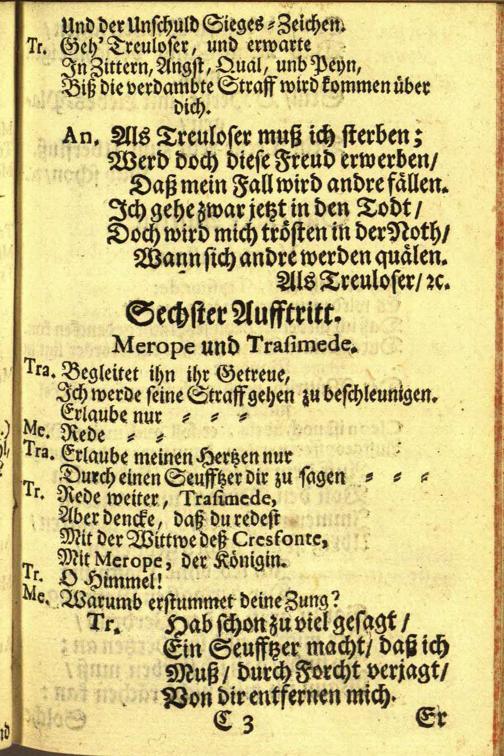 Und der Unschuld Sieges⸗Zeichen.
Tr. Geh' Treuloser, und erwarte
In Zittern, Angst, Qual, unb Peyn,
Biß die verdambte Straff wird kommen über
dich.
An. Als Treuloser muß ich sterben;
Werd doch diese Freud erwerben/
Daß mein Fall wird andre fällen.
Ich gehe zwar jetzt in den Todt/
Doch wird mich trösten in der Noth/
Wann sich andre werden quälen.
Als Treuloser/ ꝛc.
Sechster Aufftritt.
Merope und Trasimede.
Tra. Begleitet ihn ihr Getreue,
Ich werde seine Straff gehen zu beschleunigen.
Erlaube nur ⸗ ⸗ ⸗
Me. Rede ⸗ ⸗
Tra. Erlaube meinen Hertzen nur
Durch einen Seufftzer dir zu sagen ⸗ ⸗ ⸗
Tr. Rede weiter, Trasimede,
Aber dencke, daß du redest
Mit der Wittwe deß Cresfonte,
Mit Merope, der Königin.
Tr. O Himmel!
Me. Warumb erstummet deine Zung?
Tr. Hab schon zu viel gesagt/
Ein Seufftzer macht/ daß ich
Muß/ durch Forcht verjagt/
Von dir entfernen mich.
C 3 Er